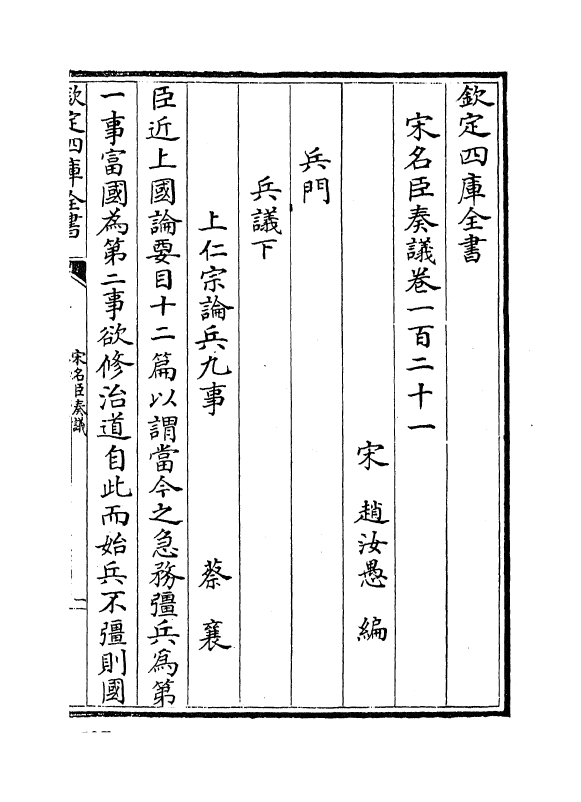 欽定四庫全書
宋名臣奏議卷一百二十一
宋　趙汝愚　編
兵門
兵議下
上仁宗論兵九事　蔡襄
臣近上國論要目十二篇以謂當今之急務彊兵爲第
一事富國為第二事欲修治道自此而始兵不彊則國
欽定四庫全書
宋名臣奏議